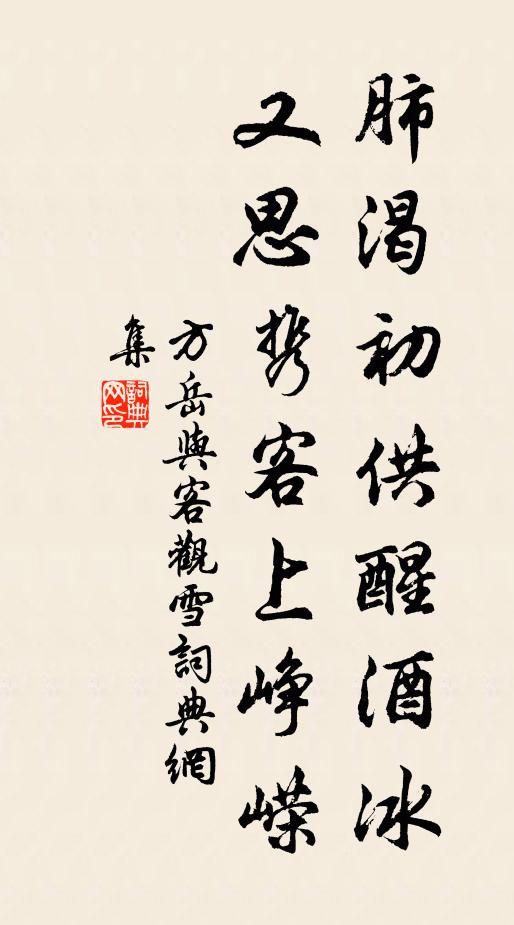 肺渴初供醒酒冰
又思携客上峥嵘
方岳與客觀雪詞典網
集
詞典网印